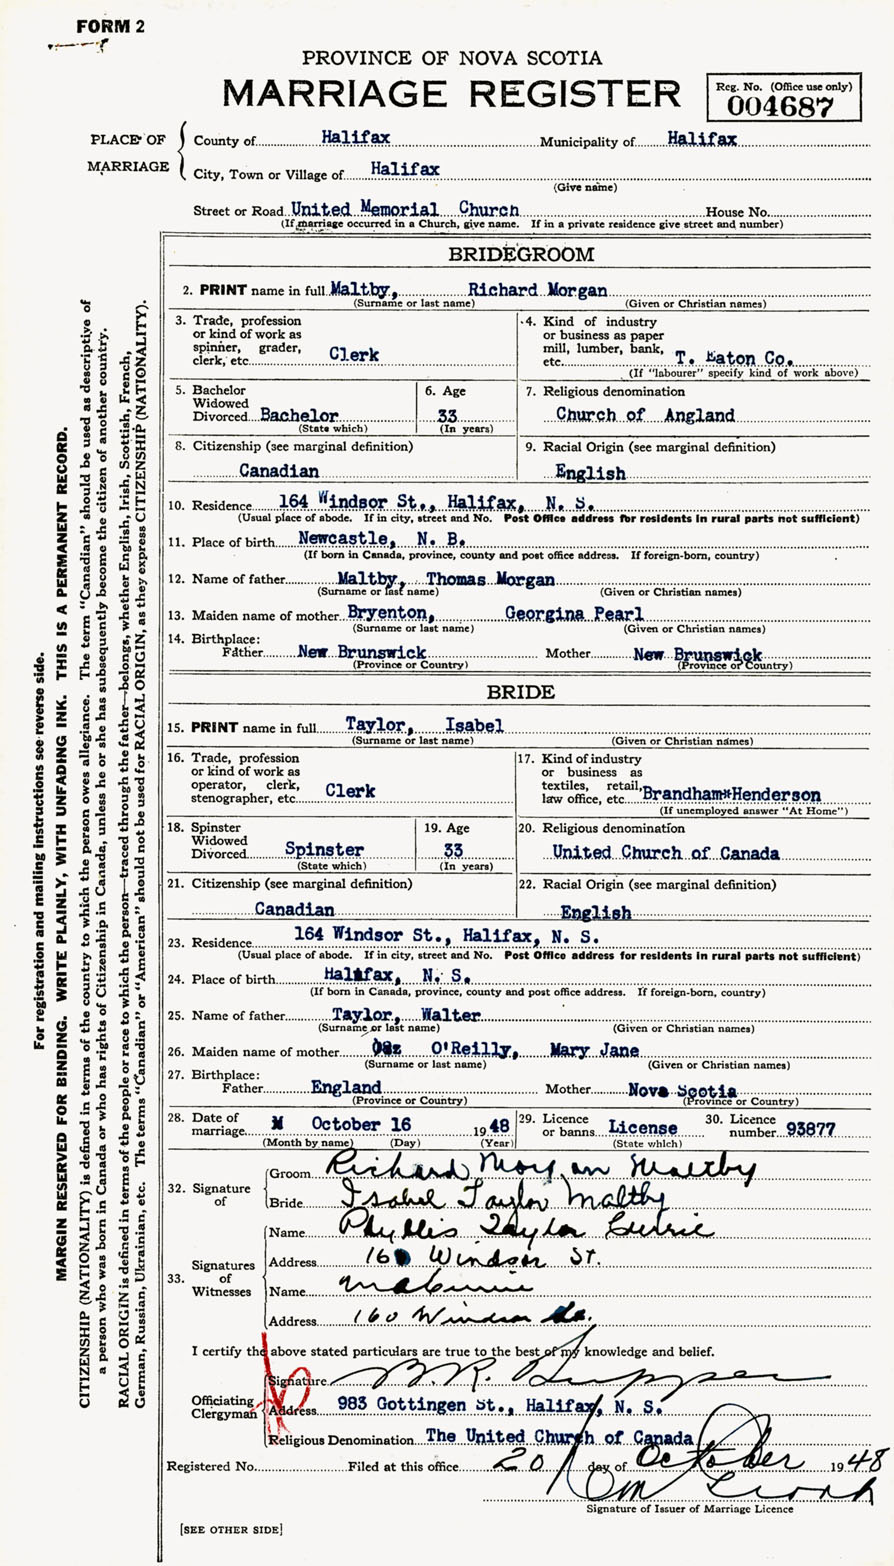 FORM 2
PROVINCE OF NOVA SCOTIA
MARRIAGE REGISTER
Reg. No. (Office use only)
004687
PLACE OF MARRIAGE
County of Halifax Municipality of Halifax
City, Town or Village of Halifax
(Give name)
Street or Road United Memorial Church House No.
(If marriage occurred in a Church, give name. If in a private residence give street and number)
BRIDEGROOM
2. PRINT name in full Maltby, Richard Morgan
(Surname or last name) (Given or Christian names)
3. Trade, profession or kind of work as spinner, grader, clerk, etc. Clerk
4. Kind of industry or business as paper mill, lumber, bank, etc. T. Eaton Co.
(If "labourer" specify kind of work above)
5. Bachelor Widowed Divorced Bachelor
(State which)
6. Age 33
(In years)
7. Religious denomination
Church of Angland
8. Citizenship (see marginal definition)
Canadian
9. Racial Origin (see marginal definition)
English
10. Residence 164 Windsor St., Halifax, N. S.
(Usual place of abode. If in city, street and No. Post Office address for residents in rural parts not sufficient)
11. Place of birth Newcastle, N. B.
(If born in Canada, province, county and post office address. If foreign-born, country)
12. Name of father Maltby, Thomas Morgan
(Surname or last name) (Given or Christian names)
13. Maiden name of mother Bryenton, Georgina Pearl
(Surname or last name) (Given or Christian names)
14. Birthplace:
Father New Brunswick Mother New Brunswick
(Province or Country) (Province or Country)
BRIDE
15. PRINT name in full Taylor, Isabel
(Surname or last name) (Given or Christian names)
16. Trade, profession or kind of work as operator, clerk, stenographer, etc. Clerk
17. Kind of industry or business as textiles, retail, law office, etc. Brandham*Henderson
(If unemployed answer "At Home")
18. Spinster Widowed Divorced Spinster
(State which)
19. Age 33
(In years)
20. Religious denomination
United Church of Canada
21. Citizenship (see marginal definition)
Canadian
22. Racial Origin (see marginal definition)
English
23. Residence 164 Windsor St., Halifax, N. S.
(Usual place of abode. If in city, street and No. Post Office address for residents in rural parts not sufficient)
24. Place of birth Halifax, N. S.
(If born in Canada, province, county and post office address. If foreign-born, country)
25. Name of father Taylor, Walter
(Surname or last name) (Given or Christian names)
26. Maiden name of mother O'Reilly, Mary Jane
(Surname or last name) (Given or Christian names)
27. Birthplace:
Father England Mother Nova Scotia
(Province or Country) (Province or Country)
28. Date of marriage October 16 1948
(Month by name) (Day) (Year)
29. Licence or banns License
(State which)
30. Licence number 93877
32. Signature of
Groom Richard Morgan Maltby
Bride Isabel Taylor Maltby
33. Signatures of Witnesses
Name Phyllis Taylor Currie
Address 160 Windsor St.
Name
Address 160 Windsor St.
I certify the above stated particulars are true to the best of my knowledge and belief.
Officiating Clergyman
Signature
Address 983 Gottingen St., Halifax, N. S.
Religious Denomination The United Church of Canada
Registered No. Filed at this office 20 day of October 1948
Signature of Issuer of Marriage Licence
[SEE OTHER SIDE]
For registration and mailing instructions see reverse side.
MARGIN RESERVED FOR BINDING. WRITE PLAINLY, WITH UNFADING INK. THIS IS A PERMANENT RECORD.
CITIZENSHIP (NATIONALITY) is defined in terms of the country to which the person owes allegiance. The term "Canadian" should be used as descriptive of
a person who was born in Canada or who has rights of Citizenship in Canada, unless he or she has subsequently become the citizen of another country.
RACIAL ORIGIN is defined in terms of the people or race to which the person—traced through the father—belongs, whether English, Irish, Scottish, French,
German, Russian, Ukrainian, etc. The terms "Canadian" or "American" should not be used for RACIAL ORIGIN, as they express CITIZENSHIP (NATIONALITY).